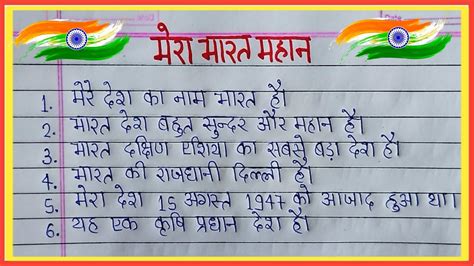 Date
मेरा भारत महान
1. मेरे देश का नाम भारत है।
2. भारत देश बहुत सुन्दर और महान है।
3. भारत दक्षिण एशिया का सबसे बड़ा देश है।
4. भारत की राजधानी दिल्ली है।
5. मेरा देश 15 अगस्त 1947 को आजाद हुआ था।
6. यह एक कृषि प्रधान देश है।